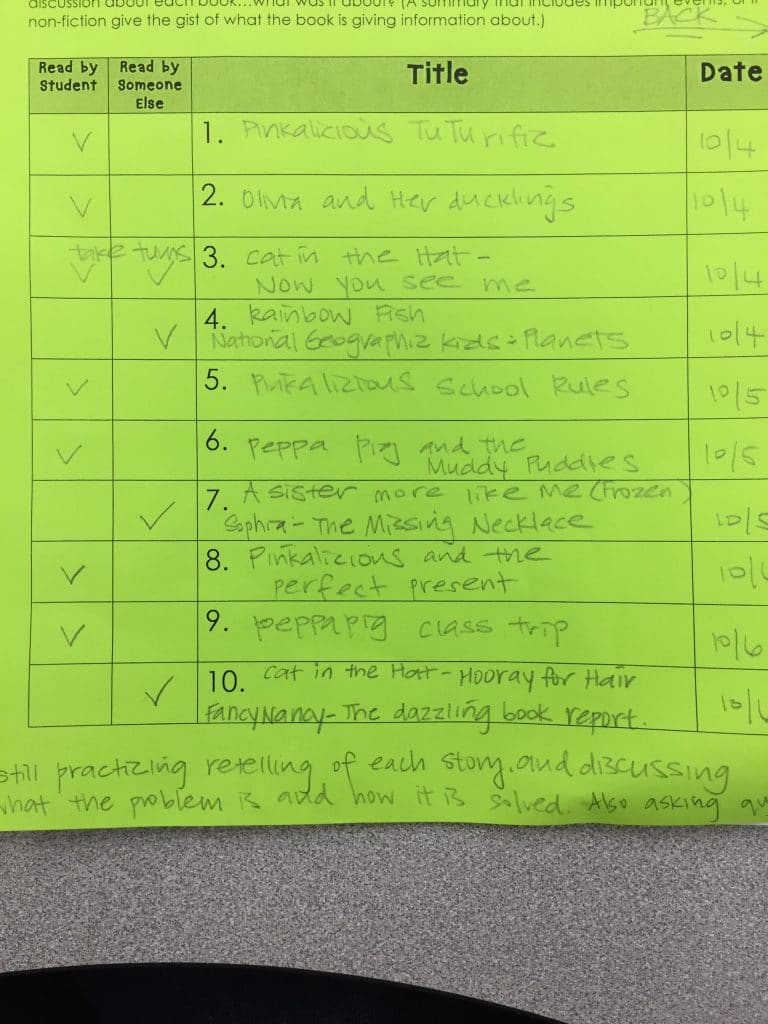 discussion about each book...what was it about? (A summary that includes important events, or if
non-fiction give the gist of what the book is giving information about.)
BACK
Read by Student
Read by Someone Else
Title
Date
✓ 1. Pinkalicious TuTurific 10/4
✓ 2. Olivia and Her ducklings 10/4
take turns
✓ ✓ 3. cat in the Hat -
Now you see me 10/4
4. Rainbow Fish
✓ National Geographic kids: Planets 10/4
✓ 5. Pinkalicious School Rules 10/5
✓ 6. Peppa Pig and the
Muddy Puddles 10/5
7. A sister more like me (Frozen)
✓ Sophia - The Missing Necklace 10/5
✓ 8. Pinkalicious and the
perfect present
✓ 9. peppa pig class trip 10/6
10. cat in the Hat - Hooray for Hair
✓ Fancy Nancy - The dazzling book report.
still practicing retelling of each story. and discussing
what the problem is and how it is solved. Also asking